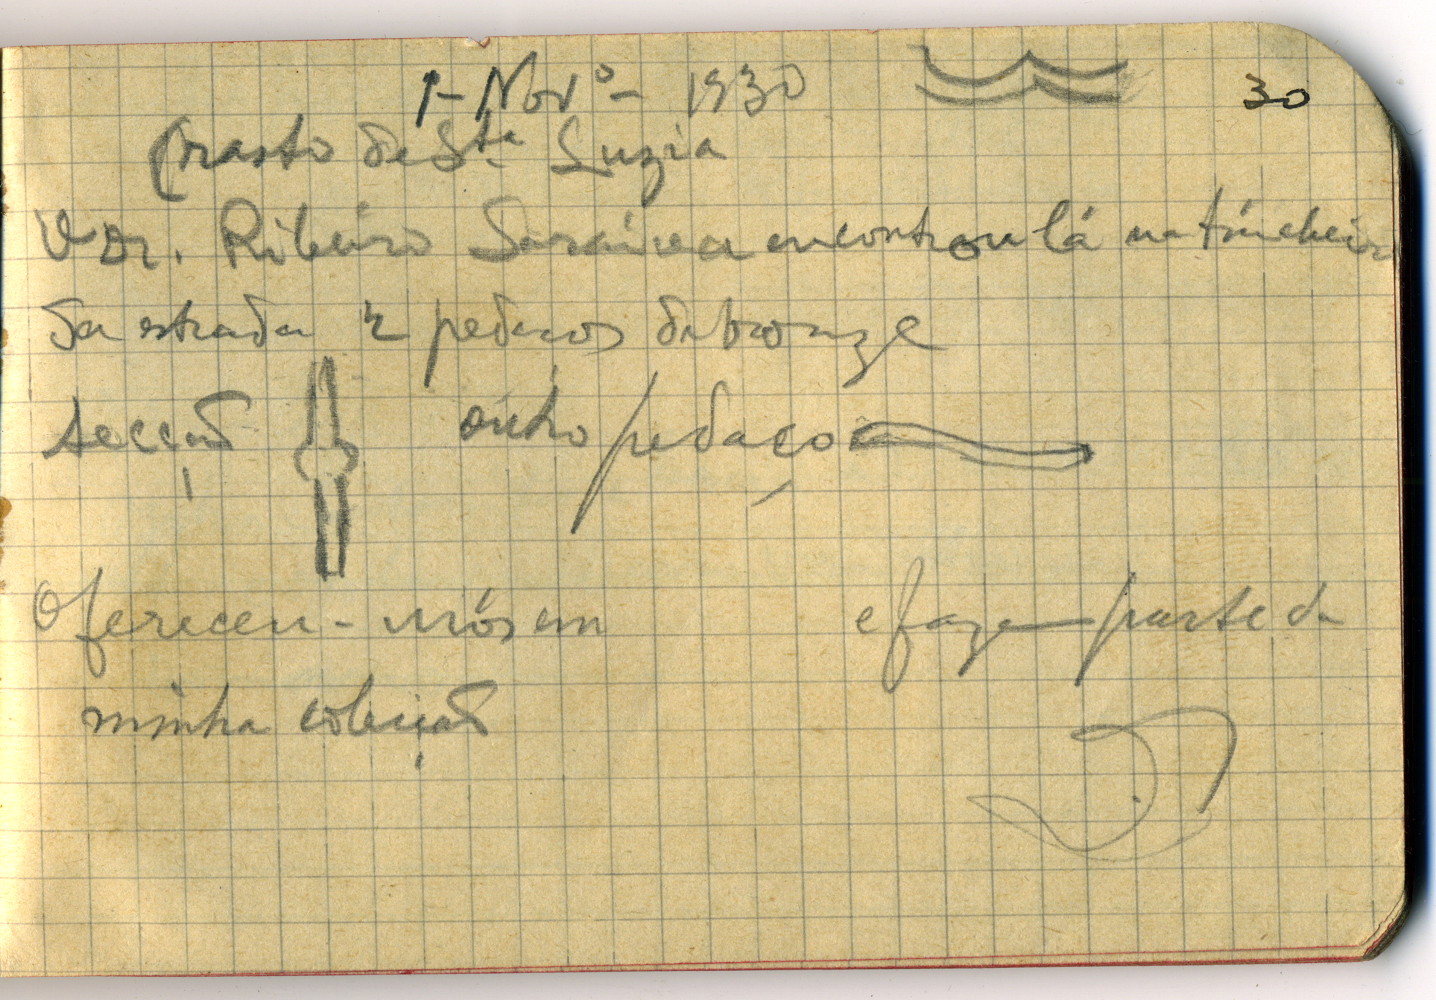 1 - Nov.º - 1930
30
Crasto de Sta Luzia
O Dr. Ribeiro Saraiva encontrou lá na trincheira
da estrada 2 pedaços de bronze
secção outro pedaço
Ofereceu-mos em e fazem parte da
minha coleição